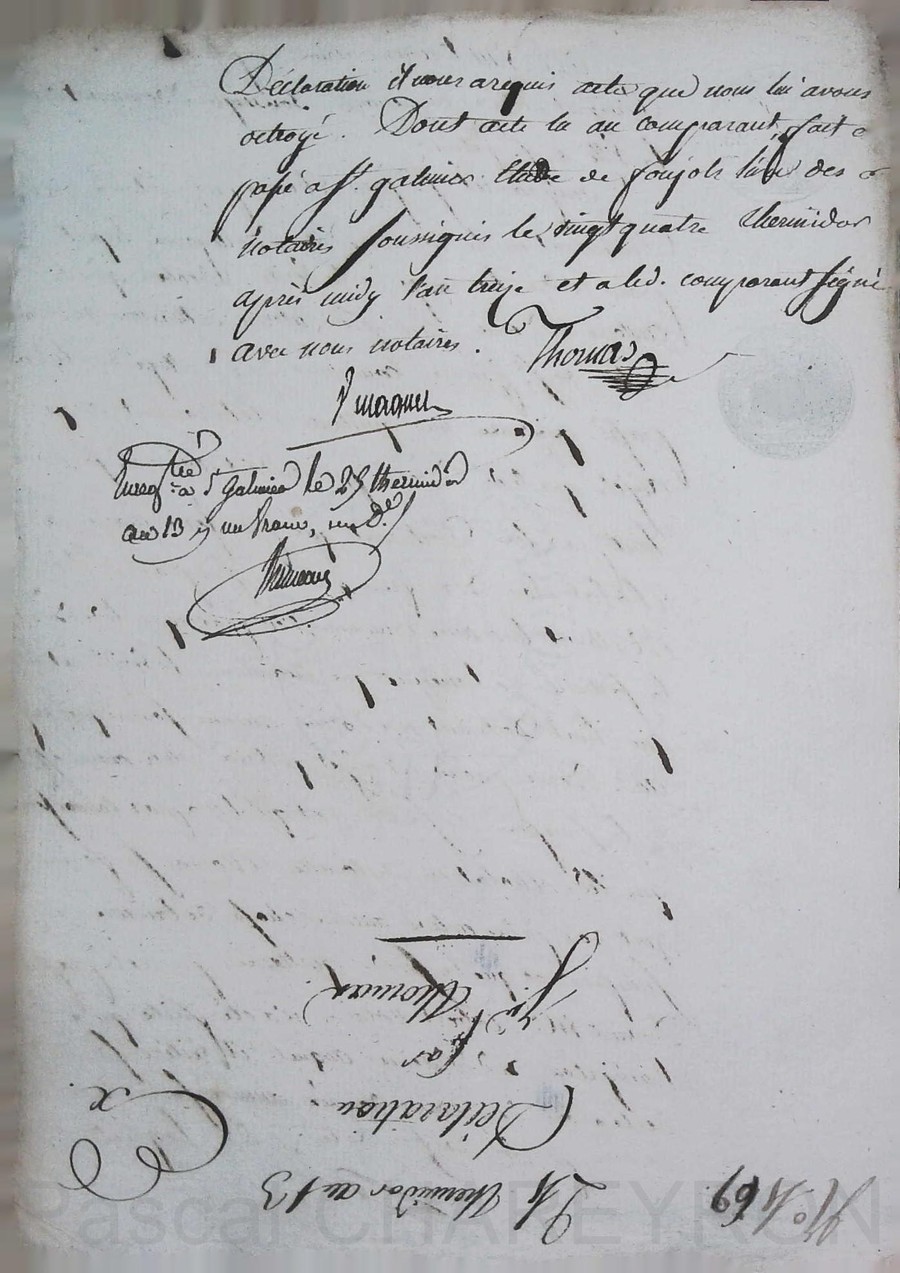 Déclaration il nous a requis acte que nous lui avons
octroyé. Dont acte lu au comparant, fait e
passé a St. galmier Etude de foujols l'un des
notaires soussignés le vingt quatre thermidor
après midy l'an treize et a led. comparant signé
avec nous notaires.
Thomas
a St galmier le 25 thermidor
an 13 un franc,
24 Thermidor an 13
Déclaration
par
Thomas
Ex.
N° 469
Pascal CHAREYRON